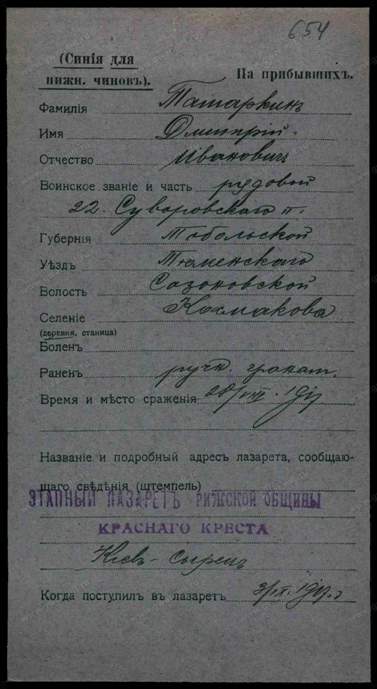 654
(Синія для нижн. чиновъ).
На прибывшихъ.
Фамилія Татаркинъ
Имя Дмитрій.
Отчество Ивановичъ
Воинское званіе и часть рядовой
22. Суворовскаго п.
Губернія Тобольской
Уѣздъ Тюменскаго
Волость Созоновской
Селеніе Космакова
(деревня, станица)
Боленъ
Раненъ ручн. гранат.
Время и мѣсто сраженія
Названіе и подробный адресъ лазарета, сообщаю-
щаго свѣдѣнія (штемпель)
ЭТАПНЫЙ ЛАЗАРЕТЪ РИЖСКОЙ ОБЩИНЫ
КРАСНАГО КРЕСТА
Кіев - Сырец
Когда поступилъ въ лазаретъ